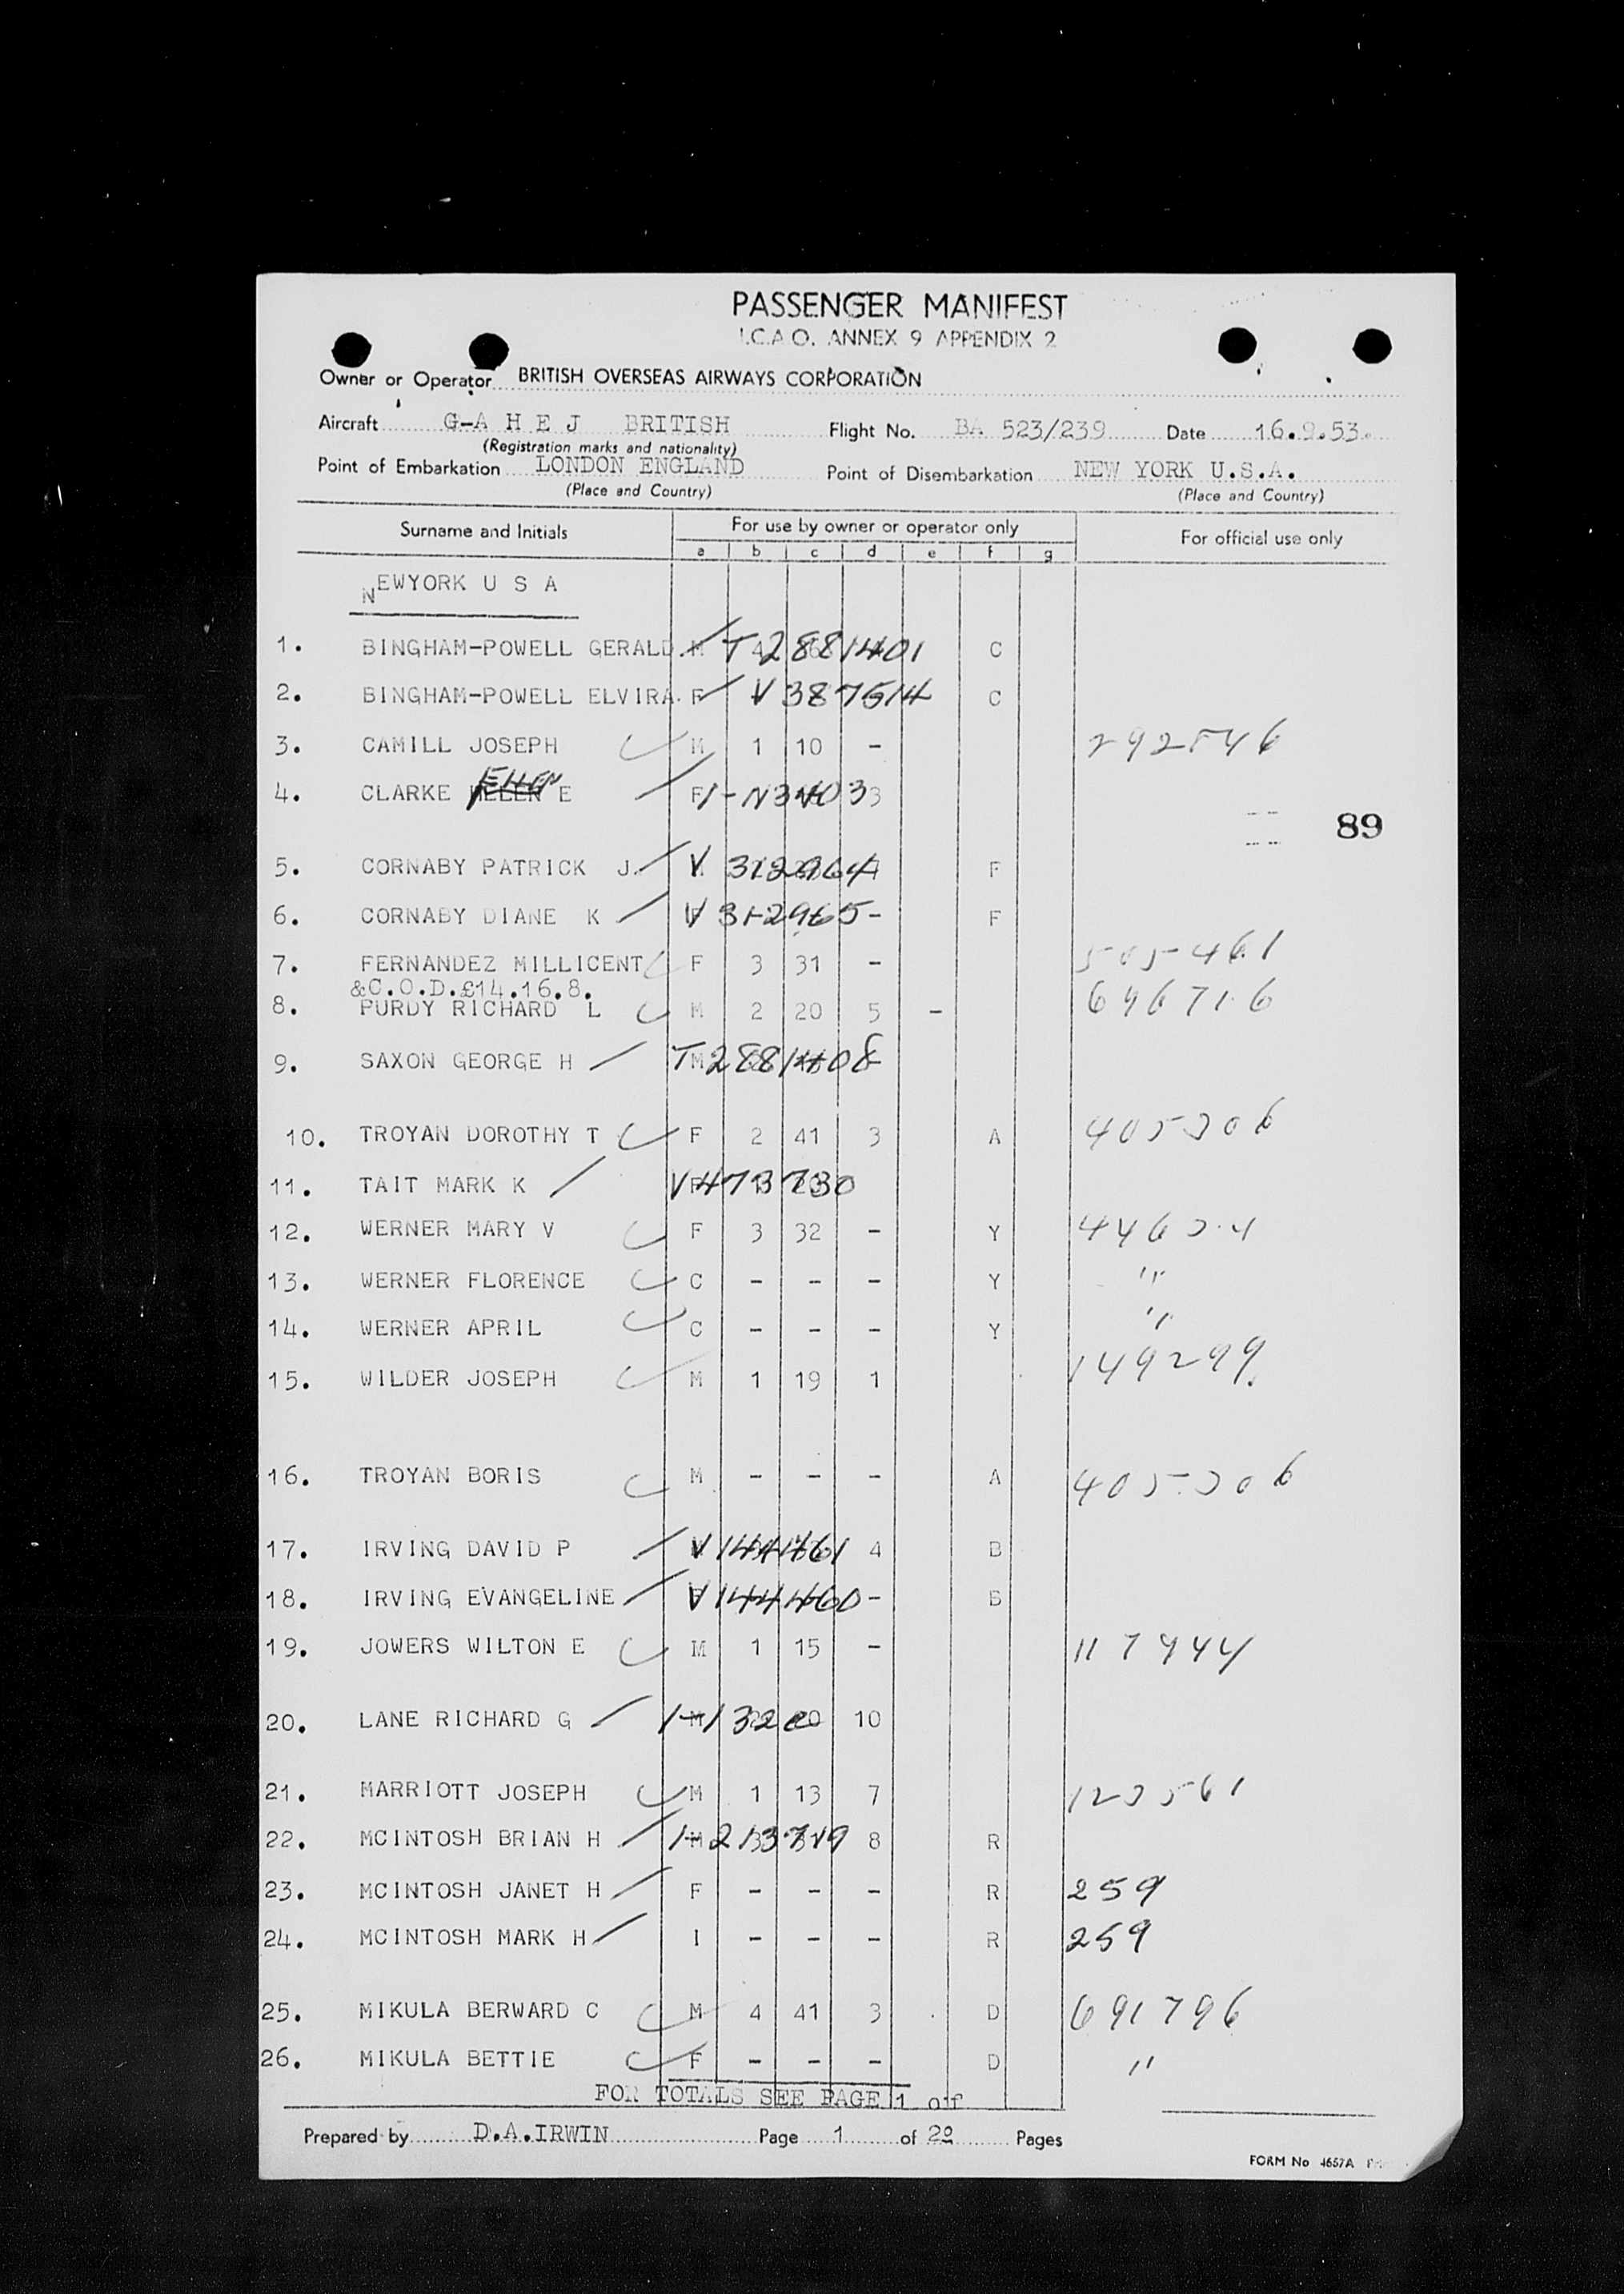 PASSENGER MANIFEST
I.C.A.O. ANNEX 9 APPENDIX 2
Owner or Operator BRITISH OVERSEAS AIRWAYS CORPORATION
Aircraft G-A H E J BRITISH Flight No. BA 523/239 Date 16.9.53.
(Registration marks and nationality)
Point of Embarkation LONDON ENGLAND Point of Disembarkation NEW YORK U.S.A.
(Place and Country) (Place and Country)
Surname and Initials For use by owner or operator only For official use only
a b c d e f g
NEWYORK U S A
1. BINGHAM-POWELL GERALD. M T 2881401 C
2. BINGHAM-POWELL ELVIRA. F V 387514 C
3. CAMILL JOSEPH M 1 10 - 292546
4. CLARKE HELEN Ellen E F 3
89
5. CORNABY PATRICK J. V 312964 F
6. CORNABY DIANE K V 312965 - F
7. FERNANDEZ MILLICENT F 3 31 - 505461
&C.O.D.£14.16.8.
8. PURDY RICHARD L M 2 20 5 - 696716
9. SAXON GEORGE H M T 2881408
10. TROYAN DOROTHY T F 2 41 3 A 405306
11. TAIT MARK K V 473730
12. WERNER MARY V F 3 32 - Y
13. WERNER FLORENCE C - - - Y "
14. WERNER APRIL C - - - Y "
15. WILDER JOSEPH M 1 19 1 149299
16. TROYAN BORIS M - - - A 405306
17. IRVING DAVID P V 144461 4 B
18. IRVING EVANGELINE V 144460 - B
19. JOWERS WILTON E M 1 15 - 117944
20. LANE RICHARD G M 10
21. MARRIOTT JOSEPH M 1 13 7 123561
22. MCINTOSH BRIAN H M 8 R
23. MCINTOSH JANET H F - - - R 259
24. MCINTOSH MARK H I - - - R 259
25. MIKULA BERWARD C M 4 41 3 D 691796
26. MIKULA BETTIE F - - - D "
FOR TOTALS SEE PAGE 1 off
Prepared by D.A.IRWIN Page 1 of 20 Pages
FORM No 4657A